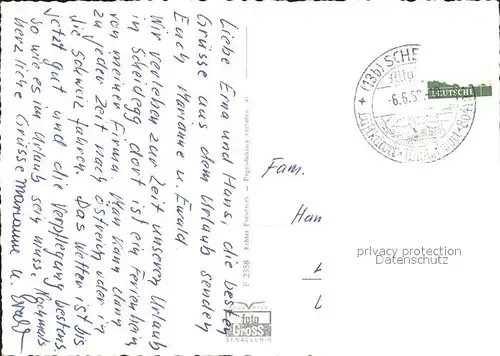 Liebe Erna und Hans, die besten
Grüsse aus dem Urlaub senden
Euch Marianne u. Ewald.
Wir verleben zur Zeit unseren Urlaub
in Scheidegg dort ist ein Ferienheim
von meiner Firma. Man kann dann
zu jeder Zeit nach Östreich oder in
die Schweiz fahren. Das Wetter ist bis
jetzt gut und die Verpflegung bestens
so wie es im Urlaub sein muss. Nochmals
herzliche Grüsse Marianne u. Ewald
F 2358 Echtes Fotochrom - Reproduktion verboten
foto
Gross
ST. GALLEN
(13b) SCHE
-6.6.5
DEUTSCHE
Fam.
Han
privacy protection
Datenschutz